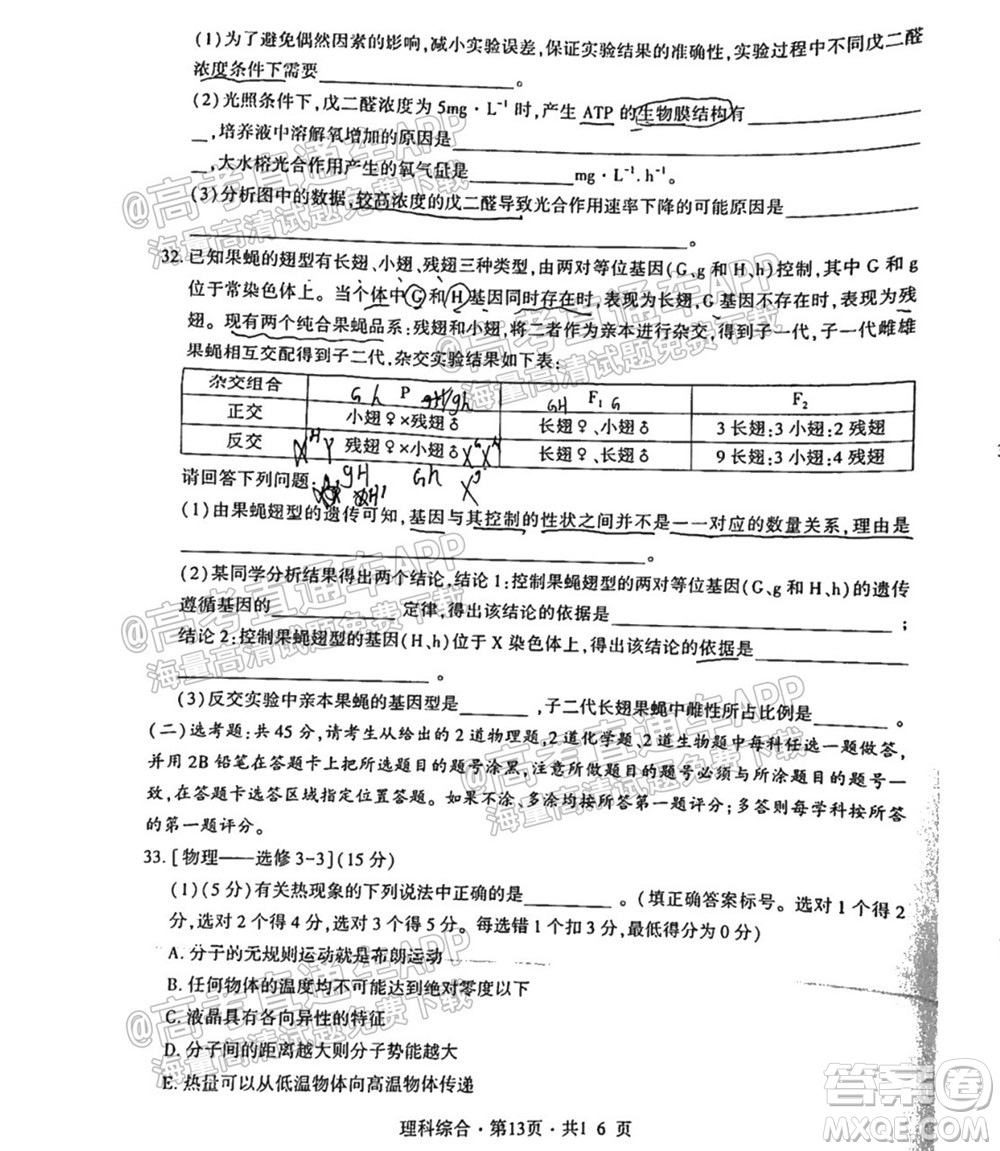 (1)为了避免偶然因素的影响,减小实验误差,保证实验结果的准确性,实验过程中不同戊二醛
浓度条件下需要____________。
(2)光照条件下,戊二醛浓度为5mg·L⁻¹时,产生ATP的生物膜结构有____________
__,培养液中溶解氧增加的原因是____________
__,大水榕光合作用产生的氧气量是________mg·L⁻¹.h⁻¹。
(3)分析图中的数据,较高浓度的戊二醛导致光合作用速率下降的可能原因是________
____________。
32. 已知果蝇的翅型有长翅、小翅、残翅三种类型,由两对等位基因(G、g和H、h)控制,其中G和g
位于常染色体上。当个体中G和H基因同时存在时,表现为长翅,G基因不存在时,表现为残
翅。现有两个纯合果蝇品系:残翅和小翅,将二者作为亲本进行杂交,得到子一代,子一代雌雄
果蝇相互交配得到子二代,杂交实验结果如下表:
杂交组合 P F₁ F₂
正交 小翅♀×残翅♂ 长翅♀、小翅♂ 3长翅:3小翅:2残翅
反交 残翅♀×小翅♂ 长翅♀、长翅♂ 9长翅:3小翅:4残翅
请回答下列问题:
(1)由果蝇翅型的遗传可知,基因与其控制的性状之间并不是一一对应的数量关系,理由是
____________。
(2)某同学分析结果得出两个结论,结论1:控制果蝇翅型的两对等位基因(G、g和H、h)的遗传
遵循基因的________定律,得出该结论的依据是____________;
结论2:控制果蝇翅型的基因(H、h)位于X染色体上,得出该结论的依据是____________
____________。
(3)反交实验中亲本果蝇的基因型是______,子二代长翅果蝇中雌性所占比例是______。
(二)选考题:共45分,请考生从给出的2道物理题、2道化学题、2道生物题中每科任选一题做答,
并用2B铅笔在答题卡上把所选题目的题号涂黑,注意所做题目的题号必须与所涂题目的题号一
致,在答题卡选答区域指定位置答题。如果不涂,多涂均按所答第一题评分;多答则每学科按所答
的第一题评分。
33. [物理——选修3-3](15分)
(1)(5分)有关热现象的下列说法中正确的是________。(填正确答案标号。选对1个得2
分,选对2个得4分,选对3个得5分。每选错1个扣3分,最低得分为0分)
A. 分子的无规则运动就是布朗运动
B. 任何物体的温度均不可能达到绝对零度以下
C. 液晶具有各向异性的特征
D. 分子间的距离越大则分子势能越大
E. 热量可以从低温物体向高温物体传递
理科综合·第13页·共1 6 页
@高考直通车APP
海量高清试题免费下载
答案卷
MXQE.COM